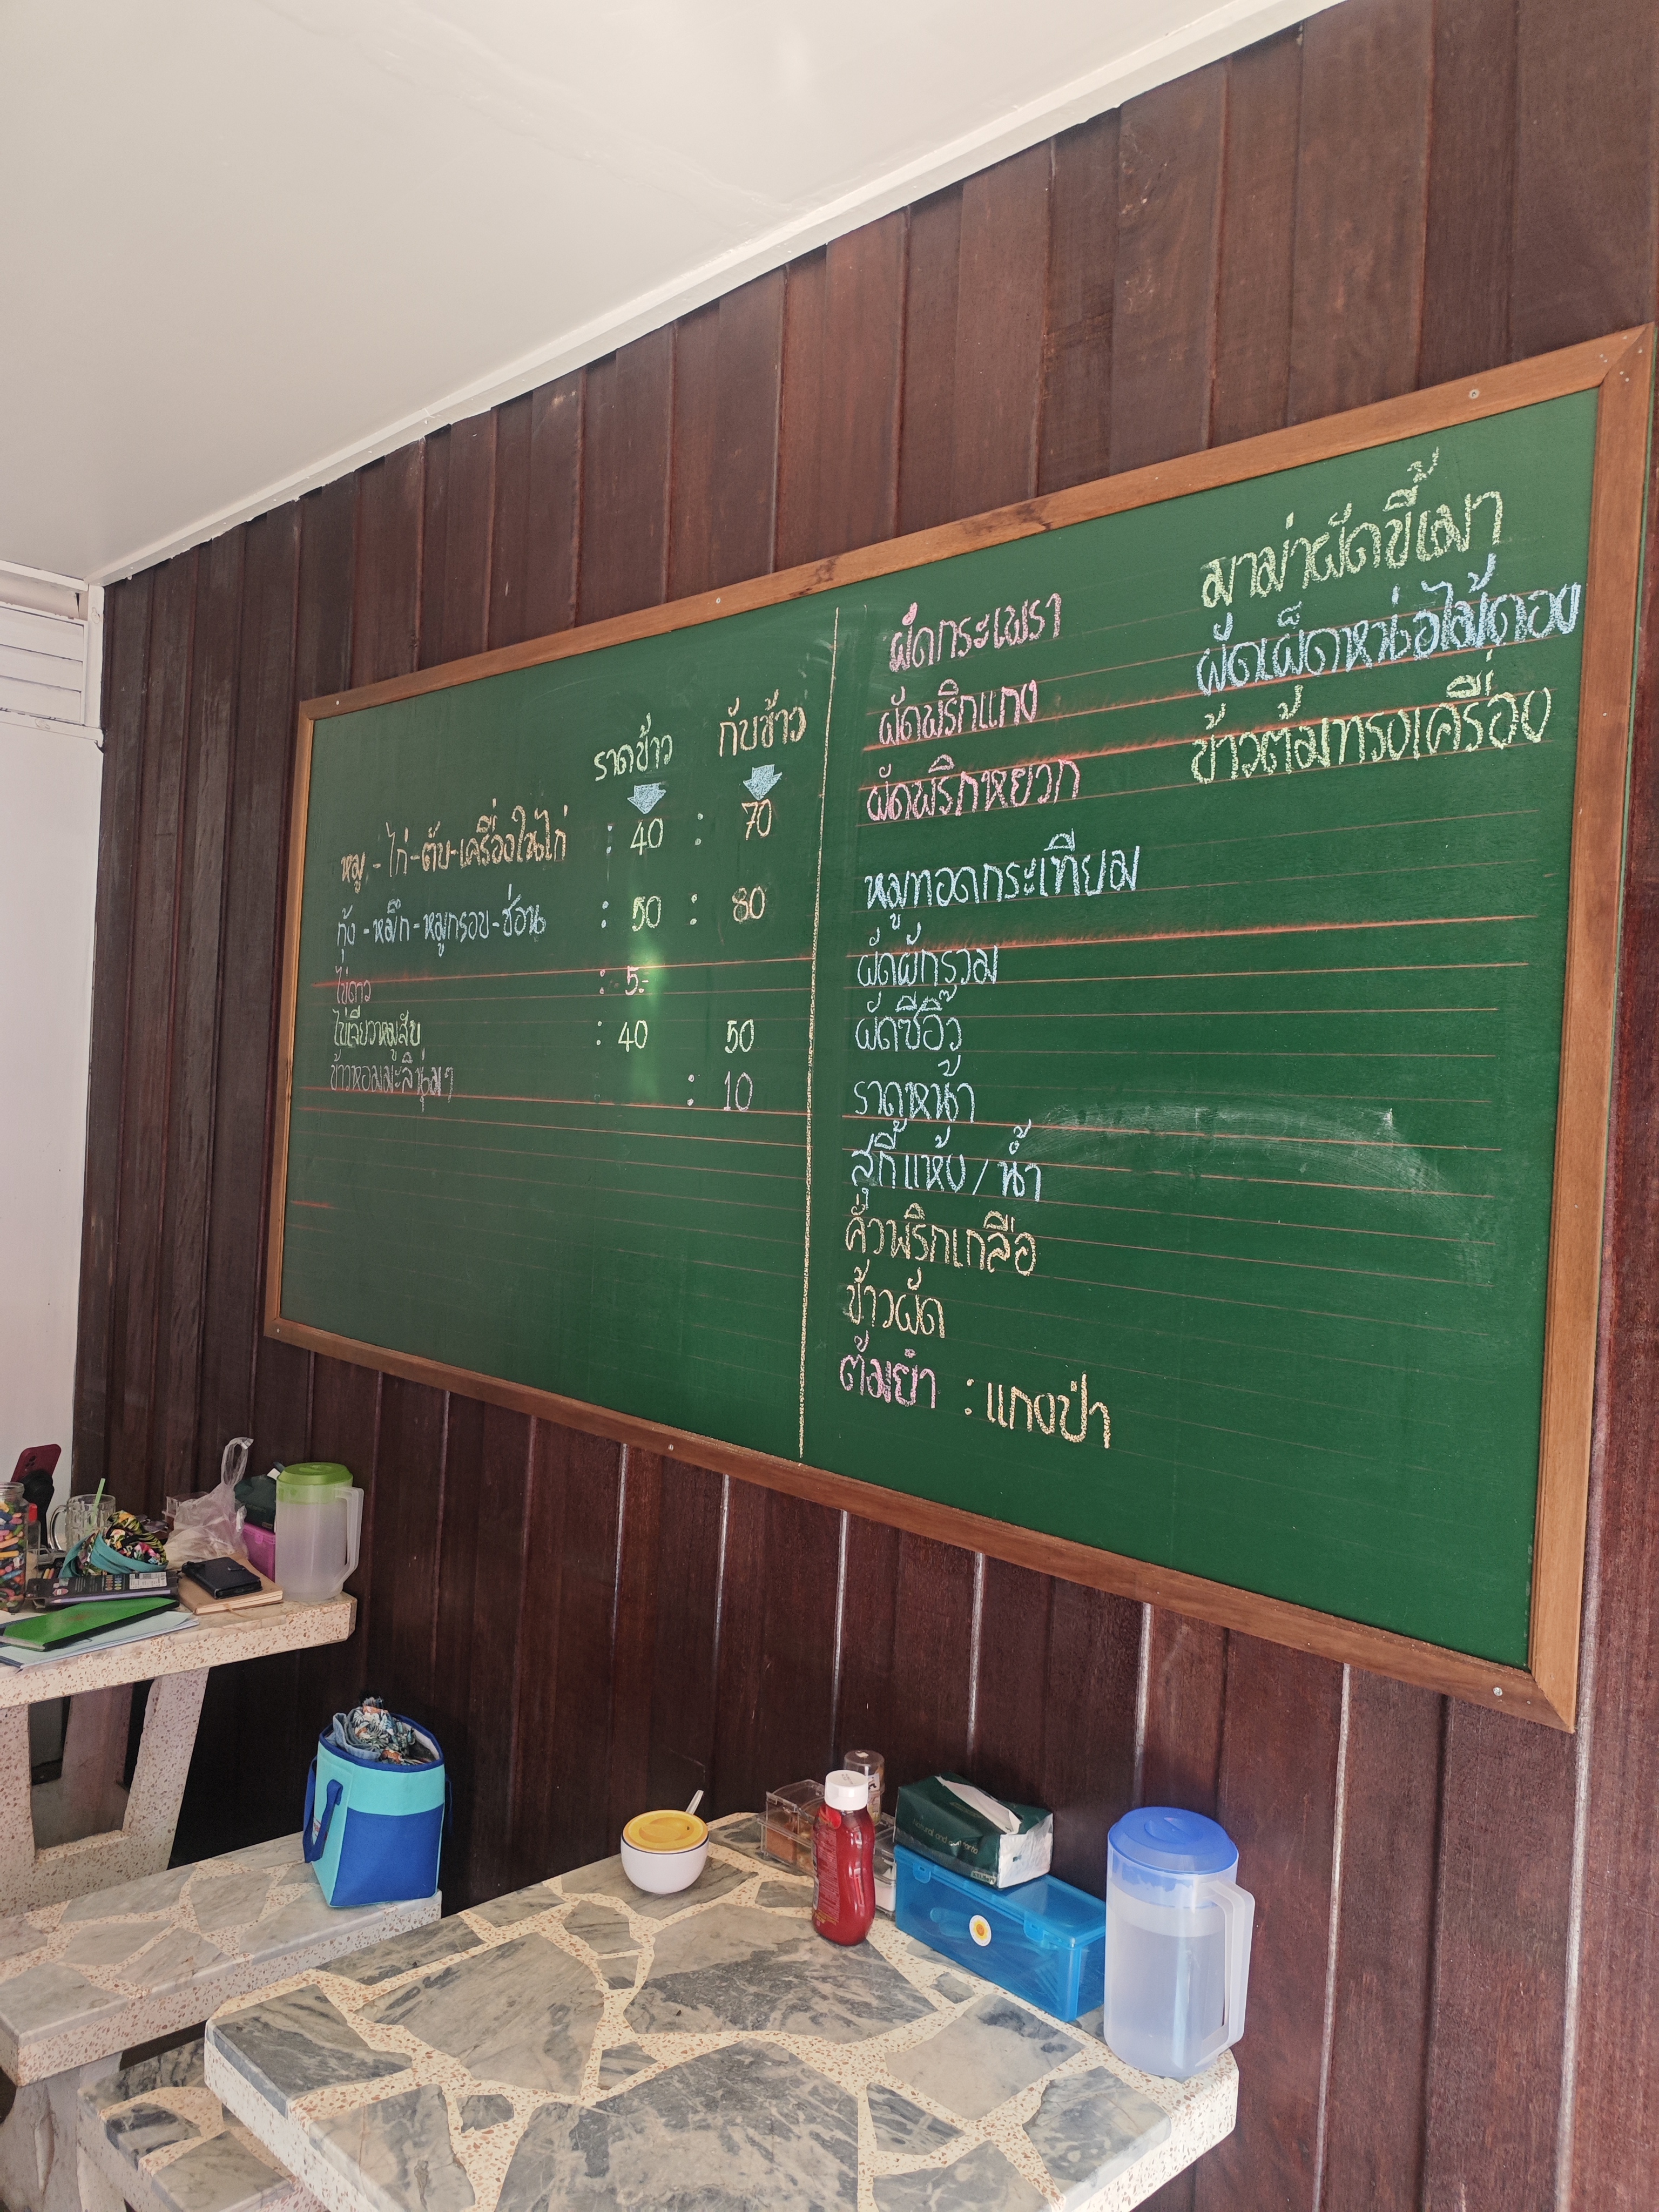 ราดข้าว กับข้าว
หมู - ไก่ - ตับ - เครื่องในไก่ : 40 : 70
กุ้ง - หมึก - หมูกรอบ - ช่อน : 50 : 80
ไข่ดาว : 5.-
ไข่เจียวหมูสับ : 40 50
ข้าวหอมมะลินุ่มๆ : 10
ผัดกระเพรา
ผัดพริกแกง
ผัดพริกหยวก
หมูทอดกระเทียม
ผัดผักรวม
ผัดซีอิ๊ว
ราดหน้า
สุกี้แห้ง / น้ำ
คั่วพริกเกลือ
ข้าวผัด
ต้มยำ : แกงป่า
มาม่าผัดขี้เมา
ผัดเผ็ดหน่อไม้ดอง
ข้าวต้มทรงเครื่อง